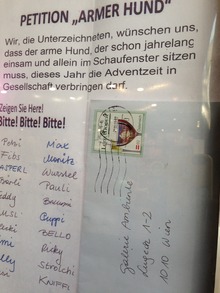 PETITION „ARMER HUND"
Wir, die Unterzeichneten, wünschen uns,
dass der arme Hund, der schon jahrelang
einsam und allein im Schaufenster sitzen
muss, dieses Jahr die Adventzeit in
Gesellschaft verbringen darf.
Zeigen Sie Here!
Bitte! Bitte! Bitte!
Max
Fibs Moritz
KASPERL Wurstel
Pauli
Teddy
Guppi
BELLO
Ricky
Strolchi
KNIFFI
Galerie Ambiente
Lugeck 1-2
1010 Wien